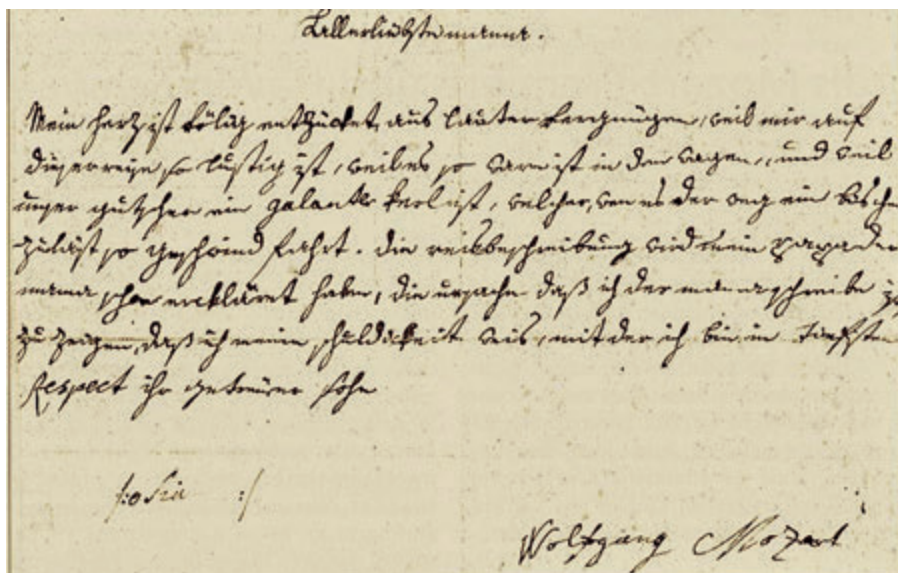 Allerliebste mama.
Mein herz ist völig entzücket, aus lauter vergnügen, weil mir auf
dieser reise so lustig ist, weil es so warm ist in den wagen, und weil
unser gutscher ein galanter kerl ist, welcher, wen es der weg ein bischen
zuläst so geschwind fahrt. die reisbeschreibung wird mein papa der
mama schon erckläret haben, die ursache daß ich der mama schreibe ist
zu zeigen, daß ich meine schuldickeit weis, mit der ich bin in tiefsten
Respect ihr getreüer sohn
Wolfgang Mozart